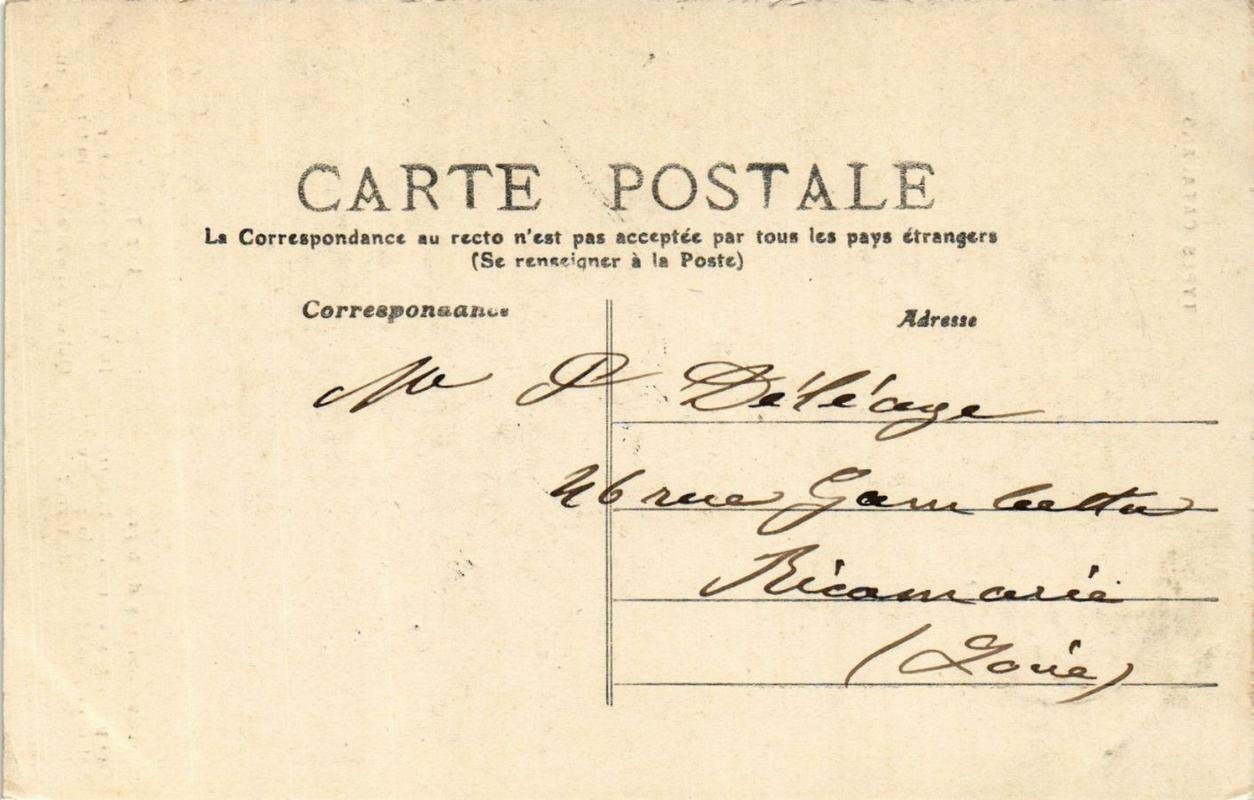 CARTE POSTALE
La Correspondance au recto n'est pas acceptée par tous les pays étrangers
(Se renseigner à la Poste)
Correspondance
Adresse
Mr P Déléage
46 rue Gambetta
Ricamarie
(Loire)
TYPES CATALANS